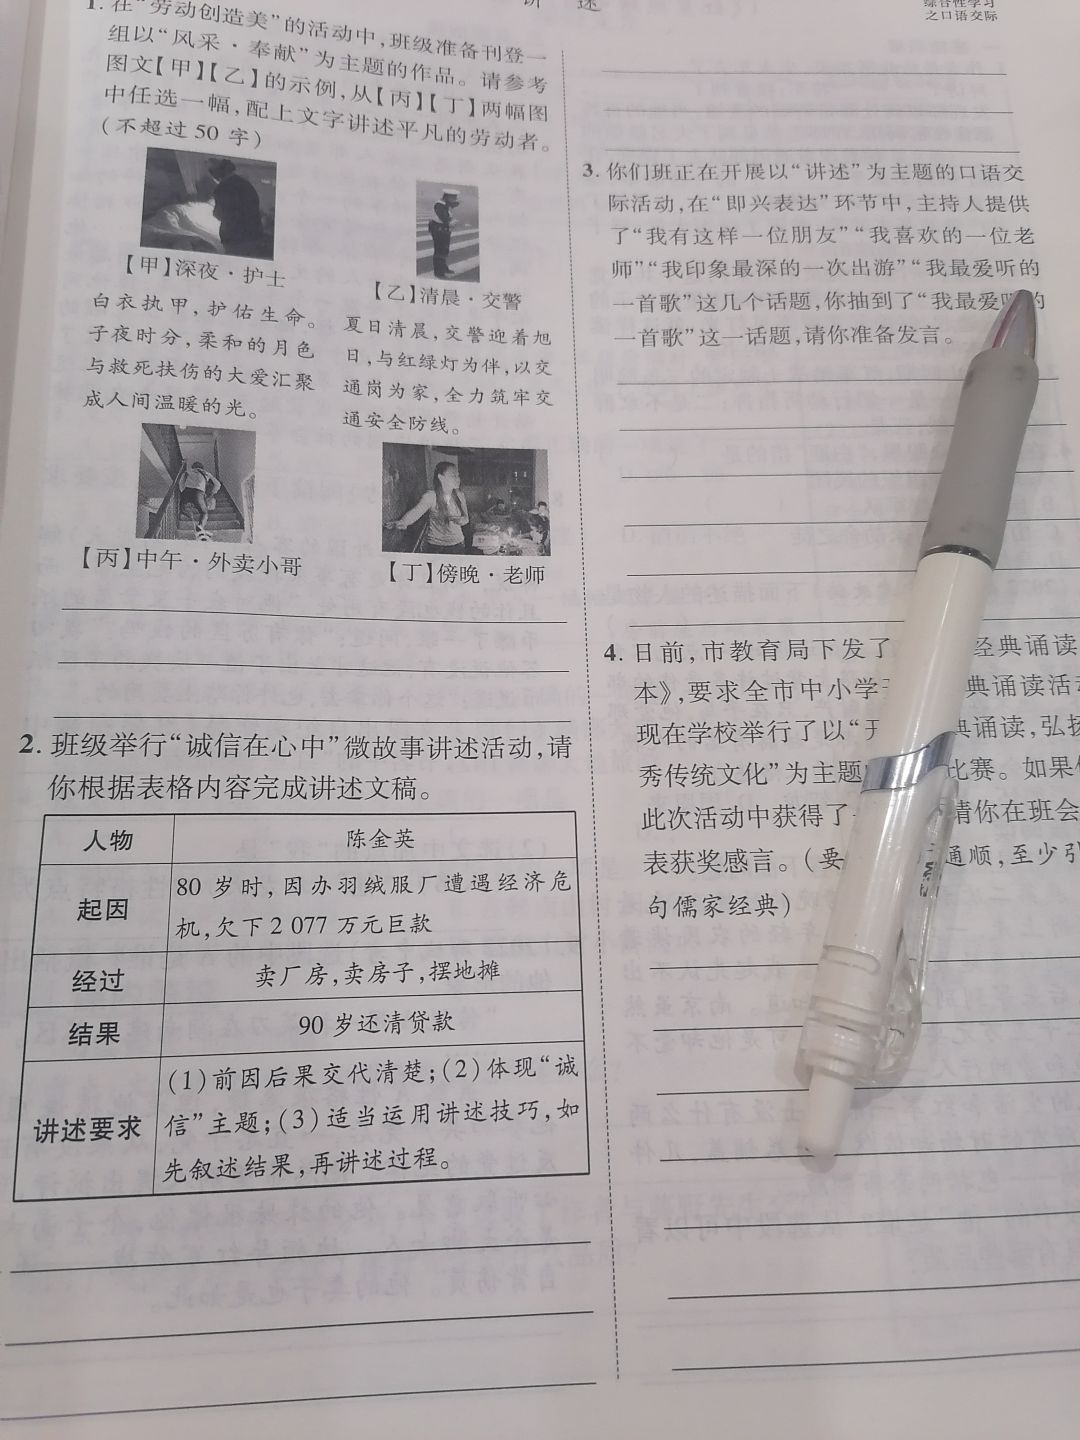 讲 述
综合性学习
之口语交际
1. 在“劳动创造美”的活动中,班级准备刊登一
组以“风采·奉献”为主题的作品。请参考
图文【甲】【乙】的示例,从【丙】【丁】两幅图
中任选一幅,配上文字讲述平凡的劳动者。
(不超过50字)
【甲】深夜·护士
白衣执甲,护佑生命。
子夜时分,柔和的月色
与救死扶伤的大爱汇聚
成人间温暖的光。
【乙】清晨·交警
夏日清晨,交警迎着旭
日,与红绿灯为伴,以交
通岗为家,全力筑牢交
通安全防线。
【丙】中午·外卖小哥
【丁】傍晚·老师
2. 班级举行“诚信在心中”微故事讲述活动,请
你根据表格内容完成讲述文稿。
人物 陈金英
起因 80岁时,因办羽绒服厂遭遇经济危
机,欠下2 077万元巨款
经过 卖厂房,卖房子,摆地摊
结果 90岁还清贷款
讲述要求 (1)前因后果交代清楚;(2)体现“诚
信”主题;(3)适当运用讲述技巧,如
先叙述结果,再讲述过程。
3. 你们班正在开展以“讲述”为主题的口语交
际活动,在“即兴表达”环节中,主持人提供
了“我有这样一位朋友”“我喜欢的一位老
师”“我印象最深的一次出游”“我最爱听的
一首歌”这几个话题,你抽到了“我最爱听的
一首歌”这一话题,请你准备发言。
4. 日前,市教育局下发了 经典诵读
本》,要求全市中小学 典诵读活动
现在学校举行了以“ 典诵读,弘扬
秀传统文化”为主题 比赛。如果
此次活动中获得了 请你在班会
表获奖感言。(要 通顺,至少引
句儒家经典)